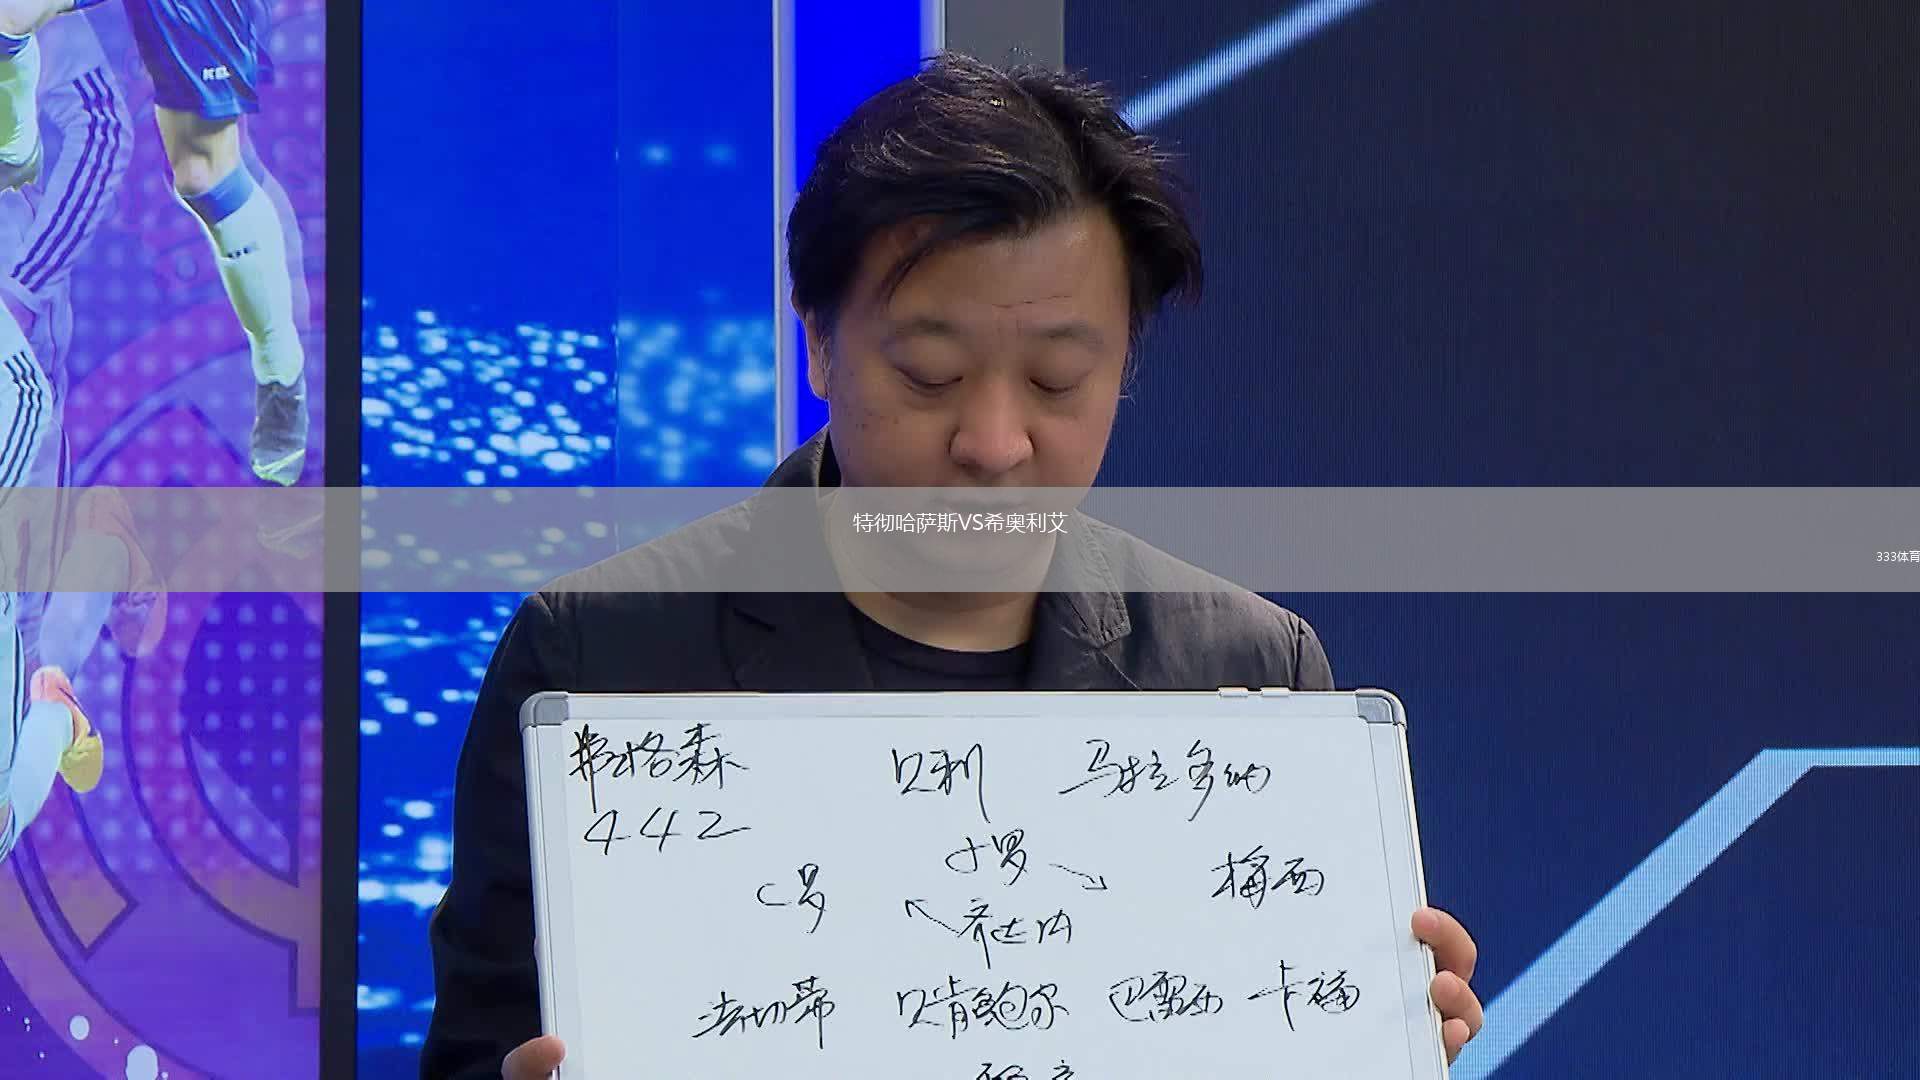 特彻哈萨斯VS希奥利艾
333体育
弗格森 贝利 马拉多纳
442
小罗
C罗 梅西
齐达内
法切蒂 贝肯鲍尔 巴雷西 卡福